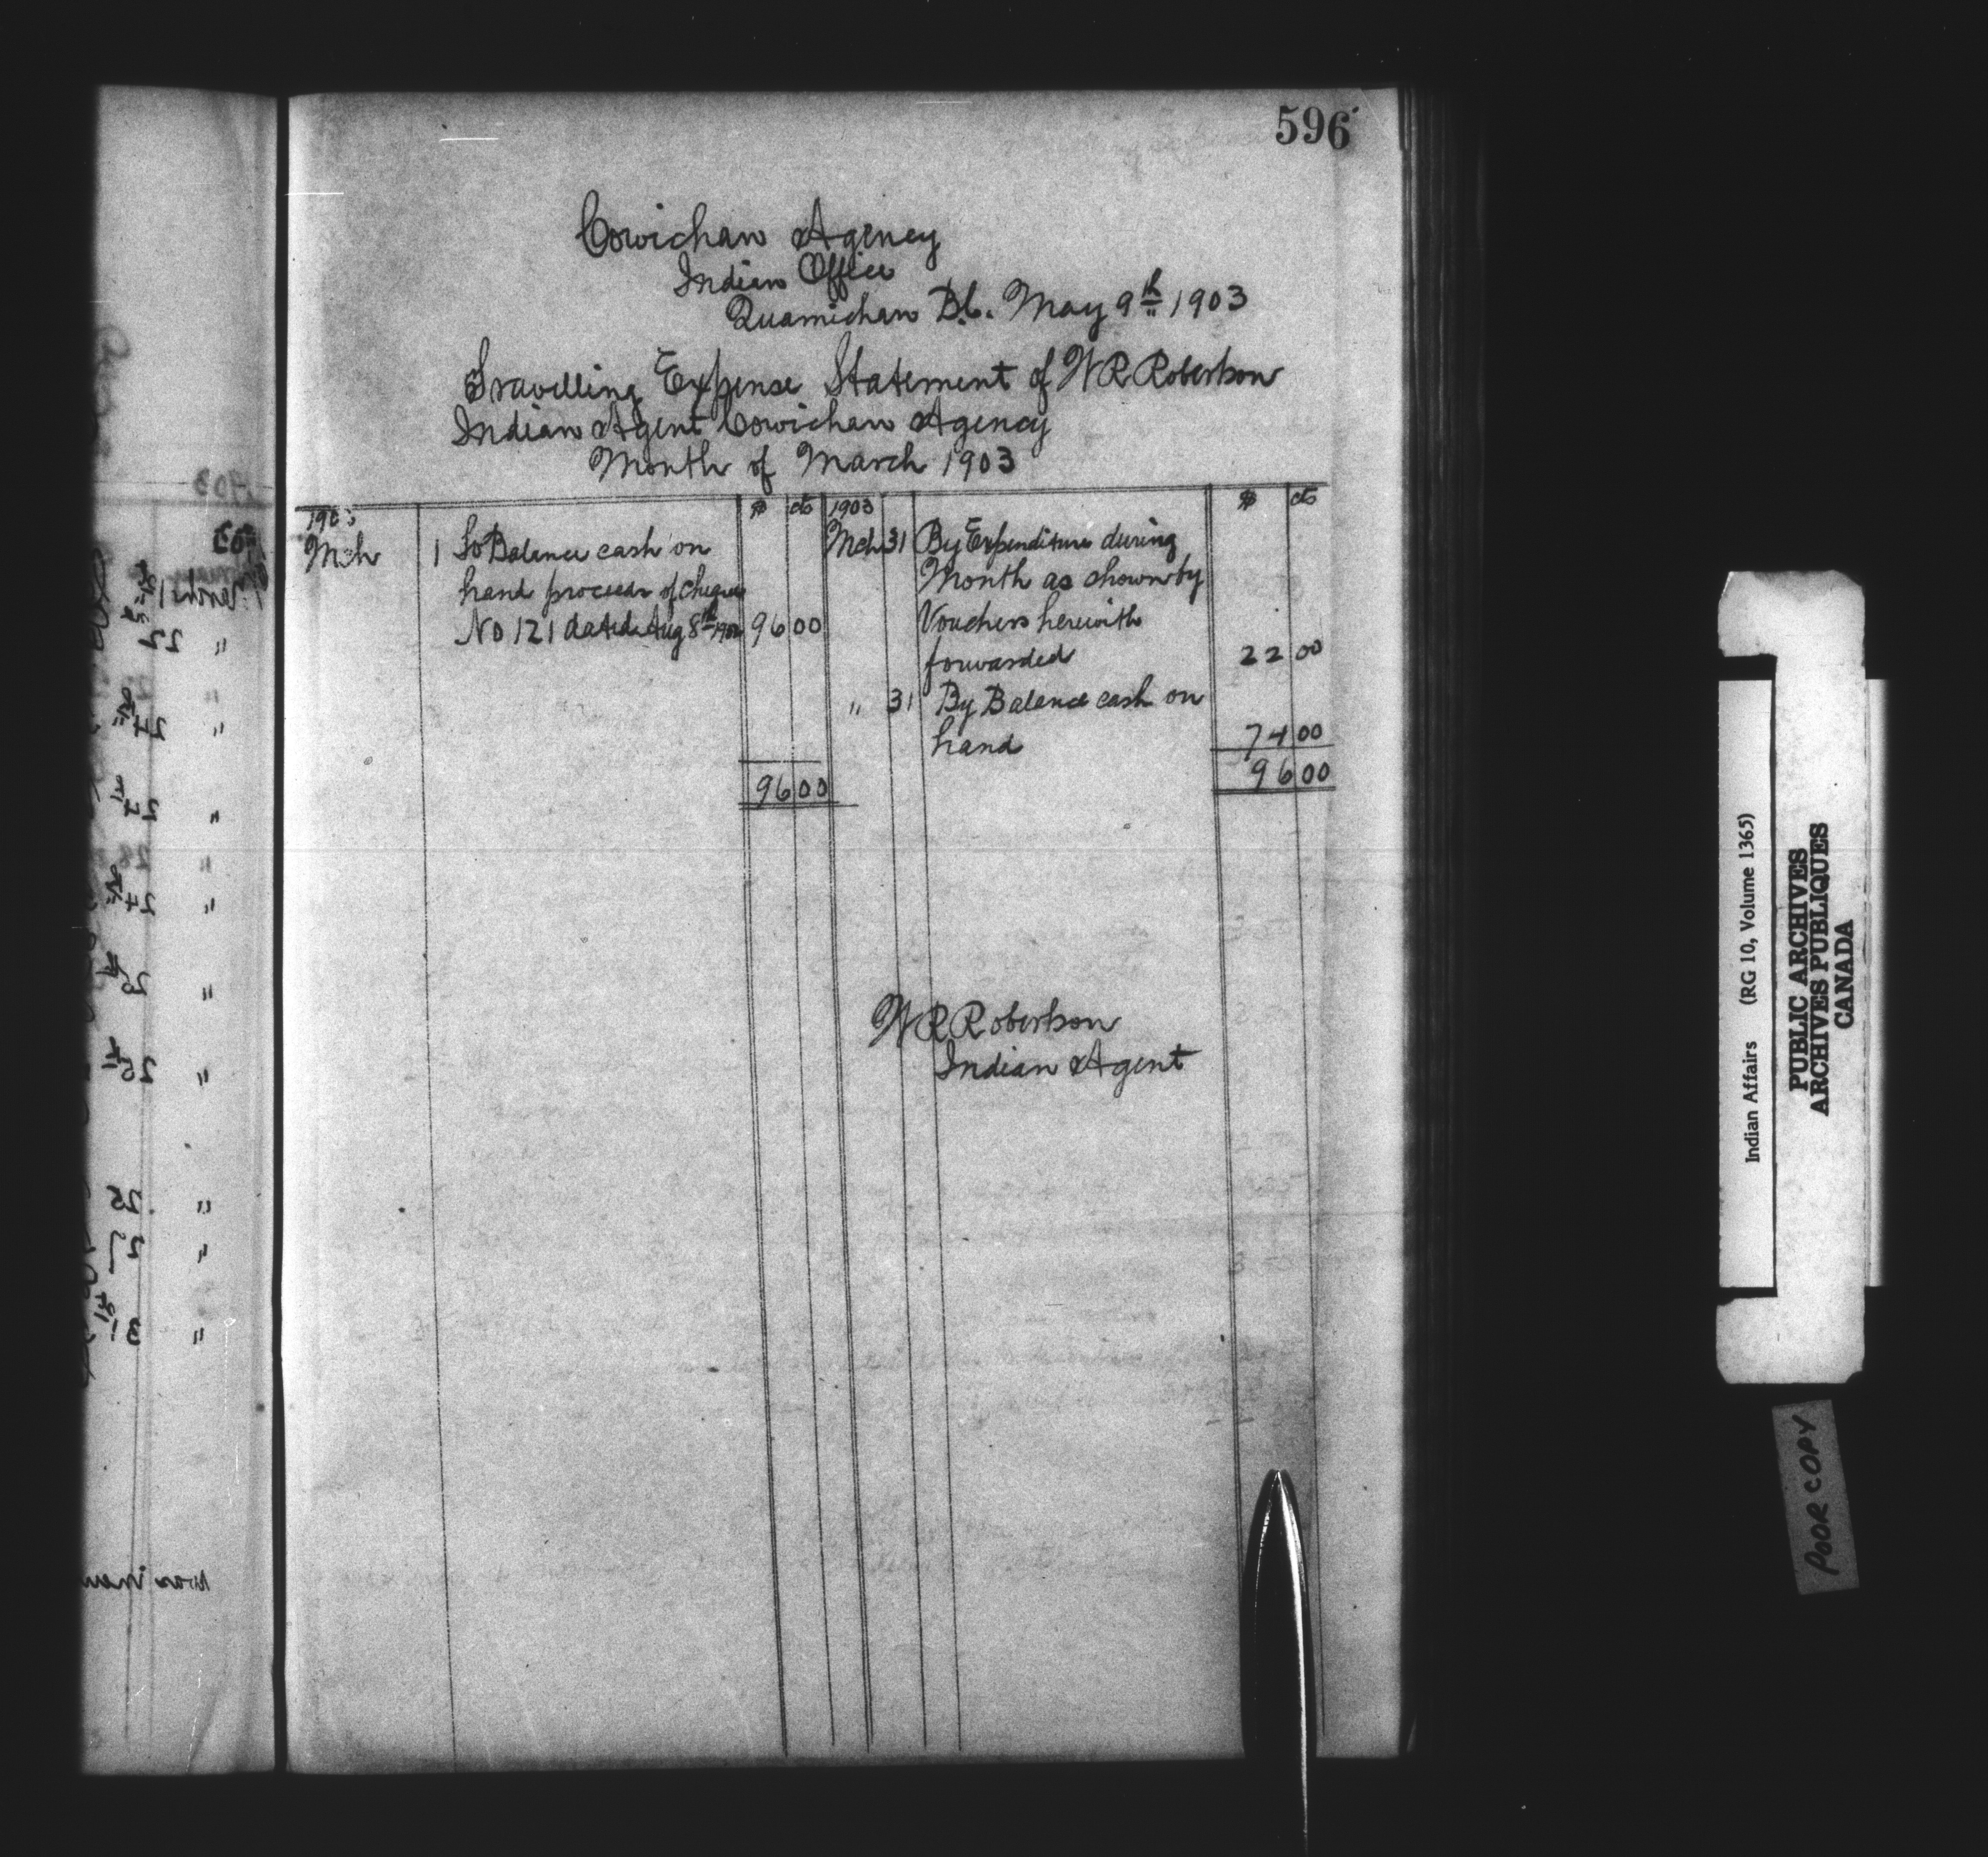 596
Cowichan Agency
Indian Office
Quamichan B.C. May 9th 1903
Travelling Expense Statement of W R Robertson
Indian Agent Cowichan Agency
Month of March 1903
1903 $ cts 1903 $ cts
Mch 1 To Balance cash on
hand proceeds of Cheque
No 121 dated Aug 8th 1902 96 00
96 00
Mch 31 By Expenditure during
Month as shown by
Vouchers herewith
forwarded 22 00
" 31 By Balance cash on
hand 74 00
96 00
W R Robertson
Indian Agent
Indian Affairs (RG 10, Volume 1365)
PUBLIC ARCHIVES
ARCHIVES PUBLIQUES
CANADA
POOR COPY